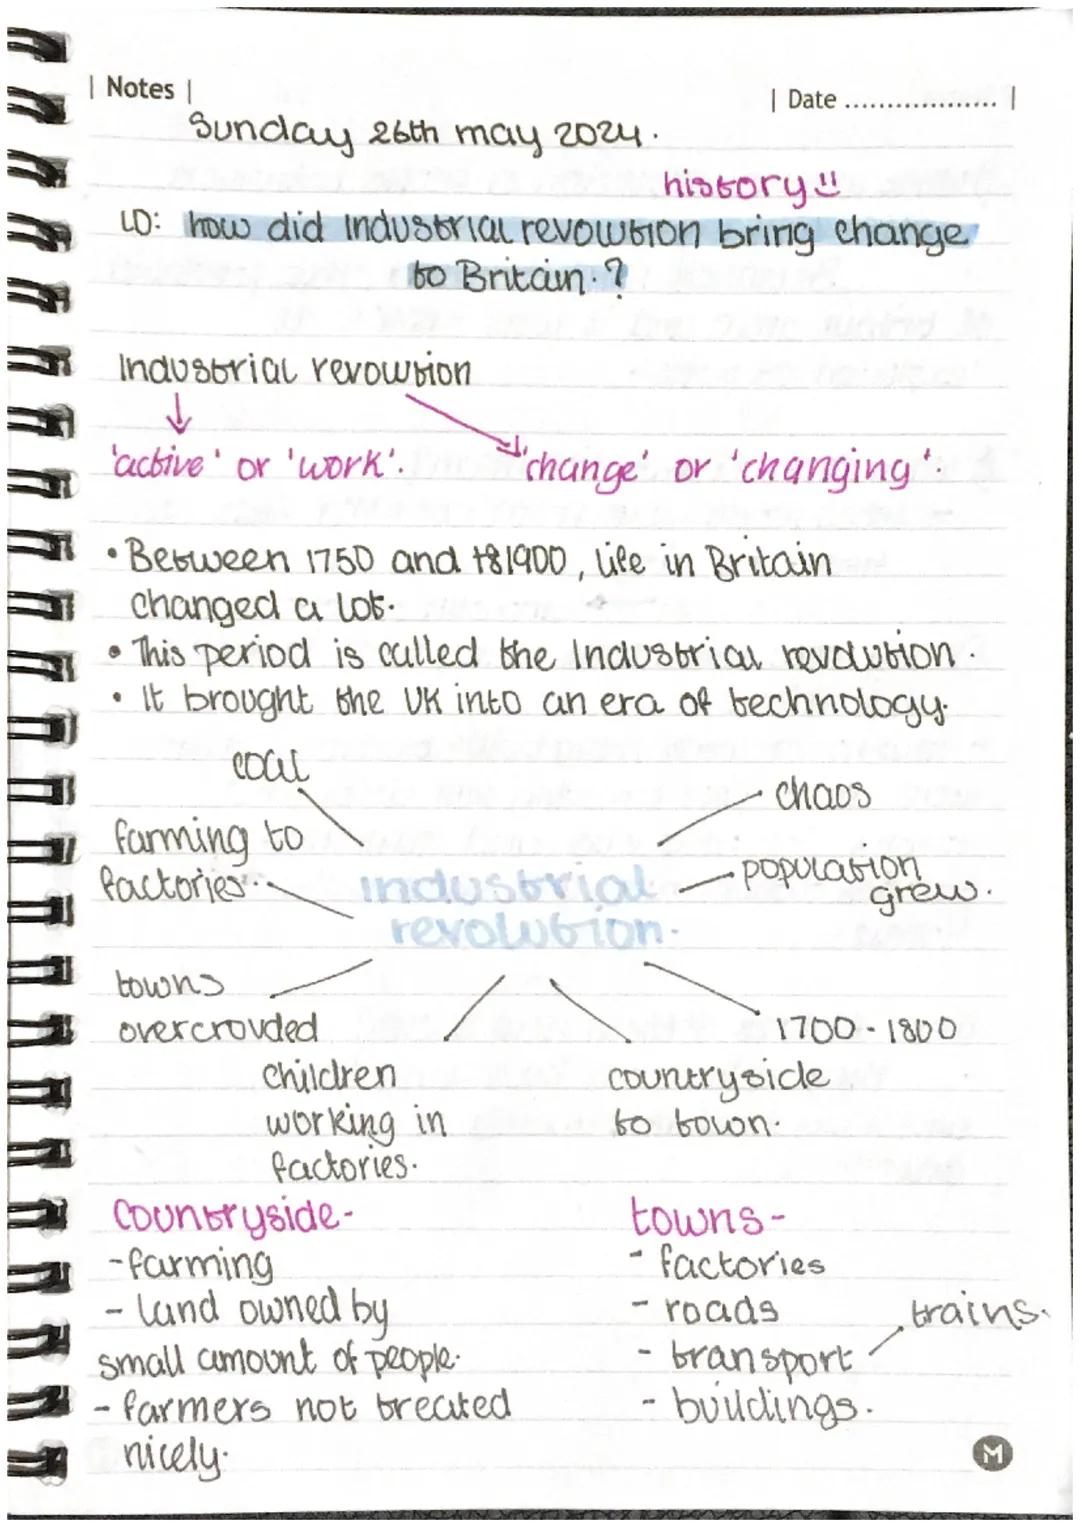 | Notes |
| Date .................. |
Sunday 26th may 2024.
history!!
LO: how did Industrial revolution bring change
to Britain.?
Industrial revolution
'active' or 'work'.
'change' or 'changing'.
• Between 1750 and 1900, life in Britain
changed a lot.
• This period is called the Industrial revolution.
• It brought the UK into an era of technology.
coal
chaos
farming to
factories.
population
grew.
industrial
revolution.
towns
overcrowded
1700-1800
children
working in
factories.
countryside
to town.
Countryside-
towns-
-farming
- factories
- land owned by
- roads
trains.
small amount of people.
- transport
- farmers not treated
- buildings.
nicely.
M